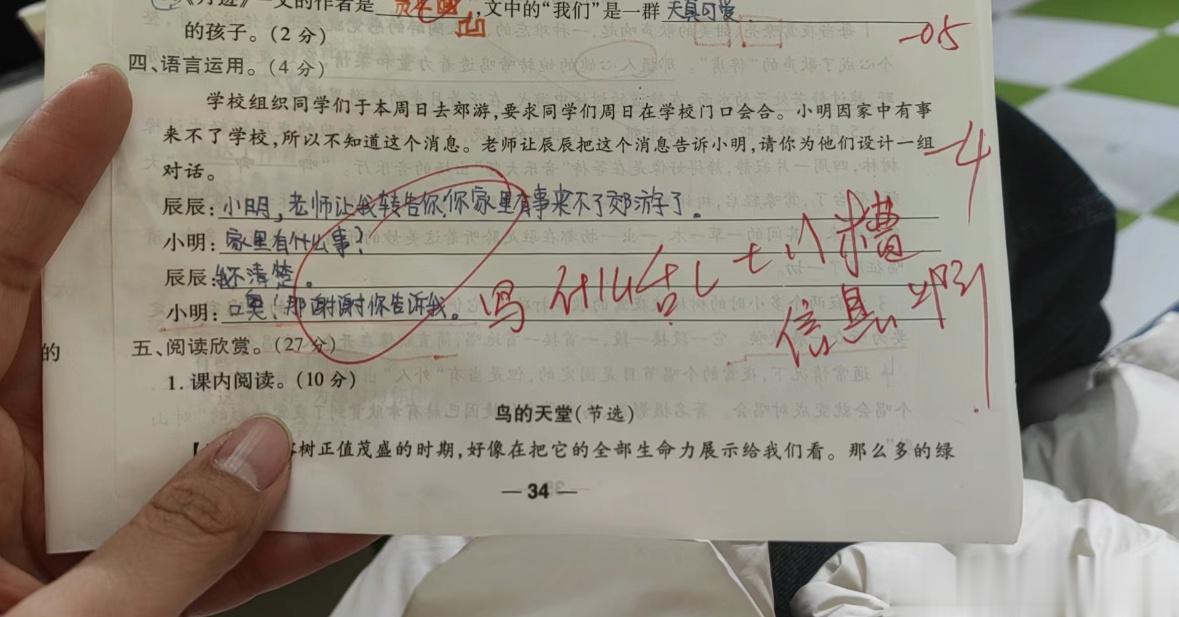 《月迹》一文的作者是 贾平凹,文中的“我们”是一群 天真可爱
的孩子。(2分)
-0.5
四、语言运用。(4分)
学校组织同学们于本周日去郊游,要求同学们周日在学校门口会合。小明因家中有事
来不了学校,所以不知道这个消息。老师让辰辰把这个消息告诉小明,请你为他们设计一组
对话。
-4
辰辰:小明,老师让我转告你,你家里有事来不了郊游了。
小明:家里有什么事?
辰辰:不清楚。
小明:噢!那谢谢你告诉我。
写什么乱七八糟
信息
五、阅读欣赏。(27分)
的
1.课内阅读。(10分)
鸟的天堂(节选)
树正值茂盛的时期,好像在把它的全部生命力展示给我们看。那么多的绿
— 34 —